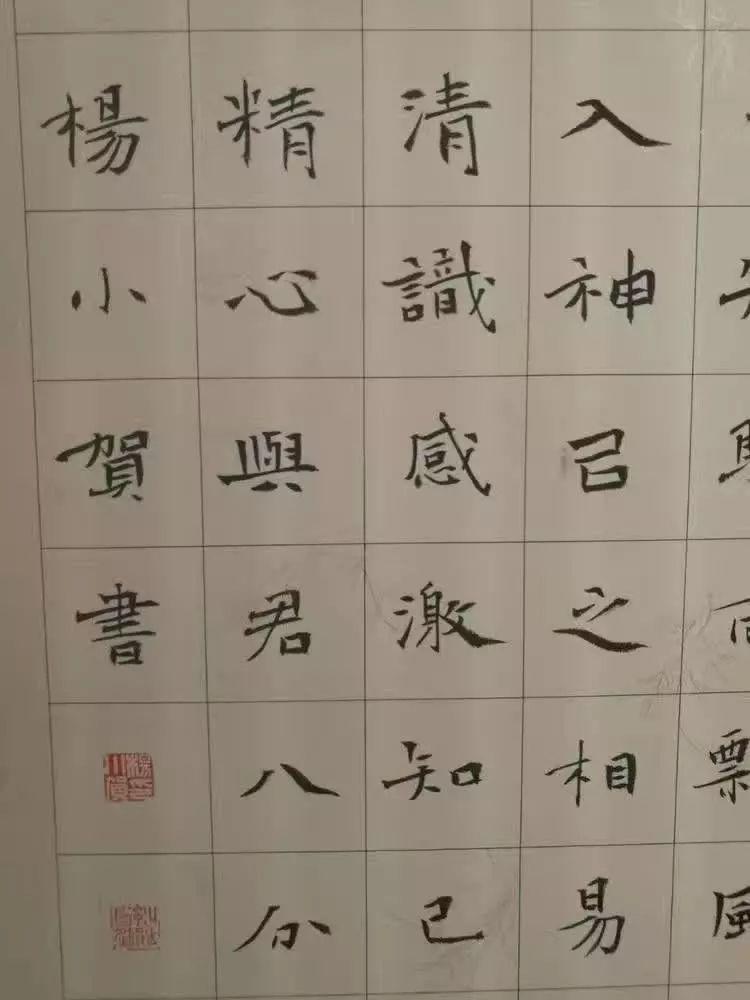 入神㠯之相易
清識感激知己
精心與君八分
楊小賀書